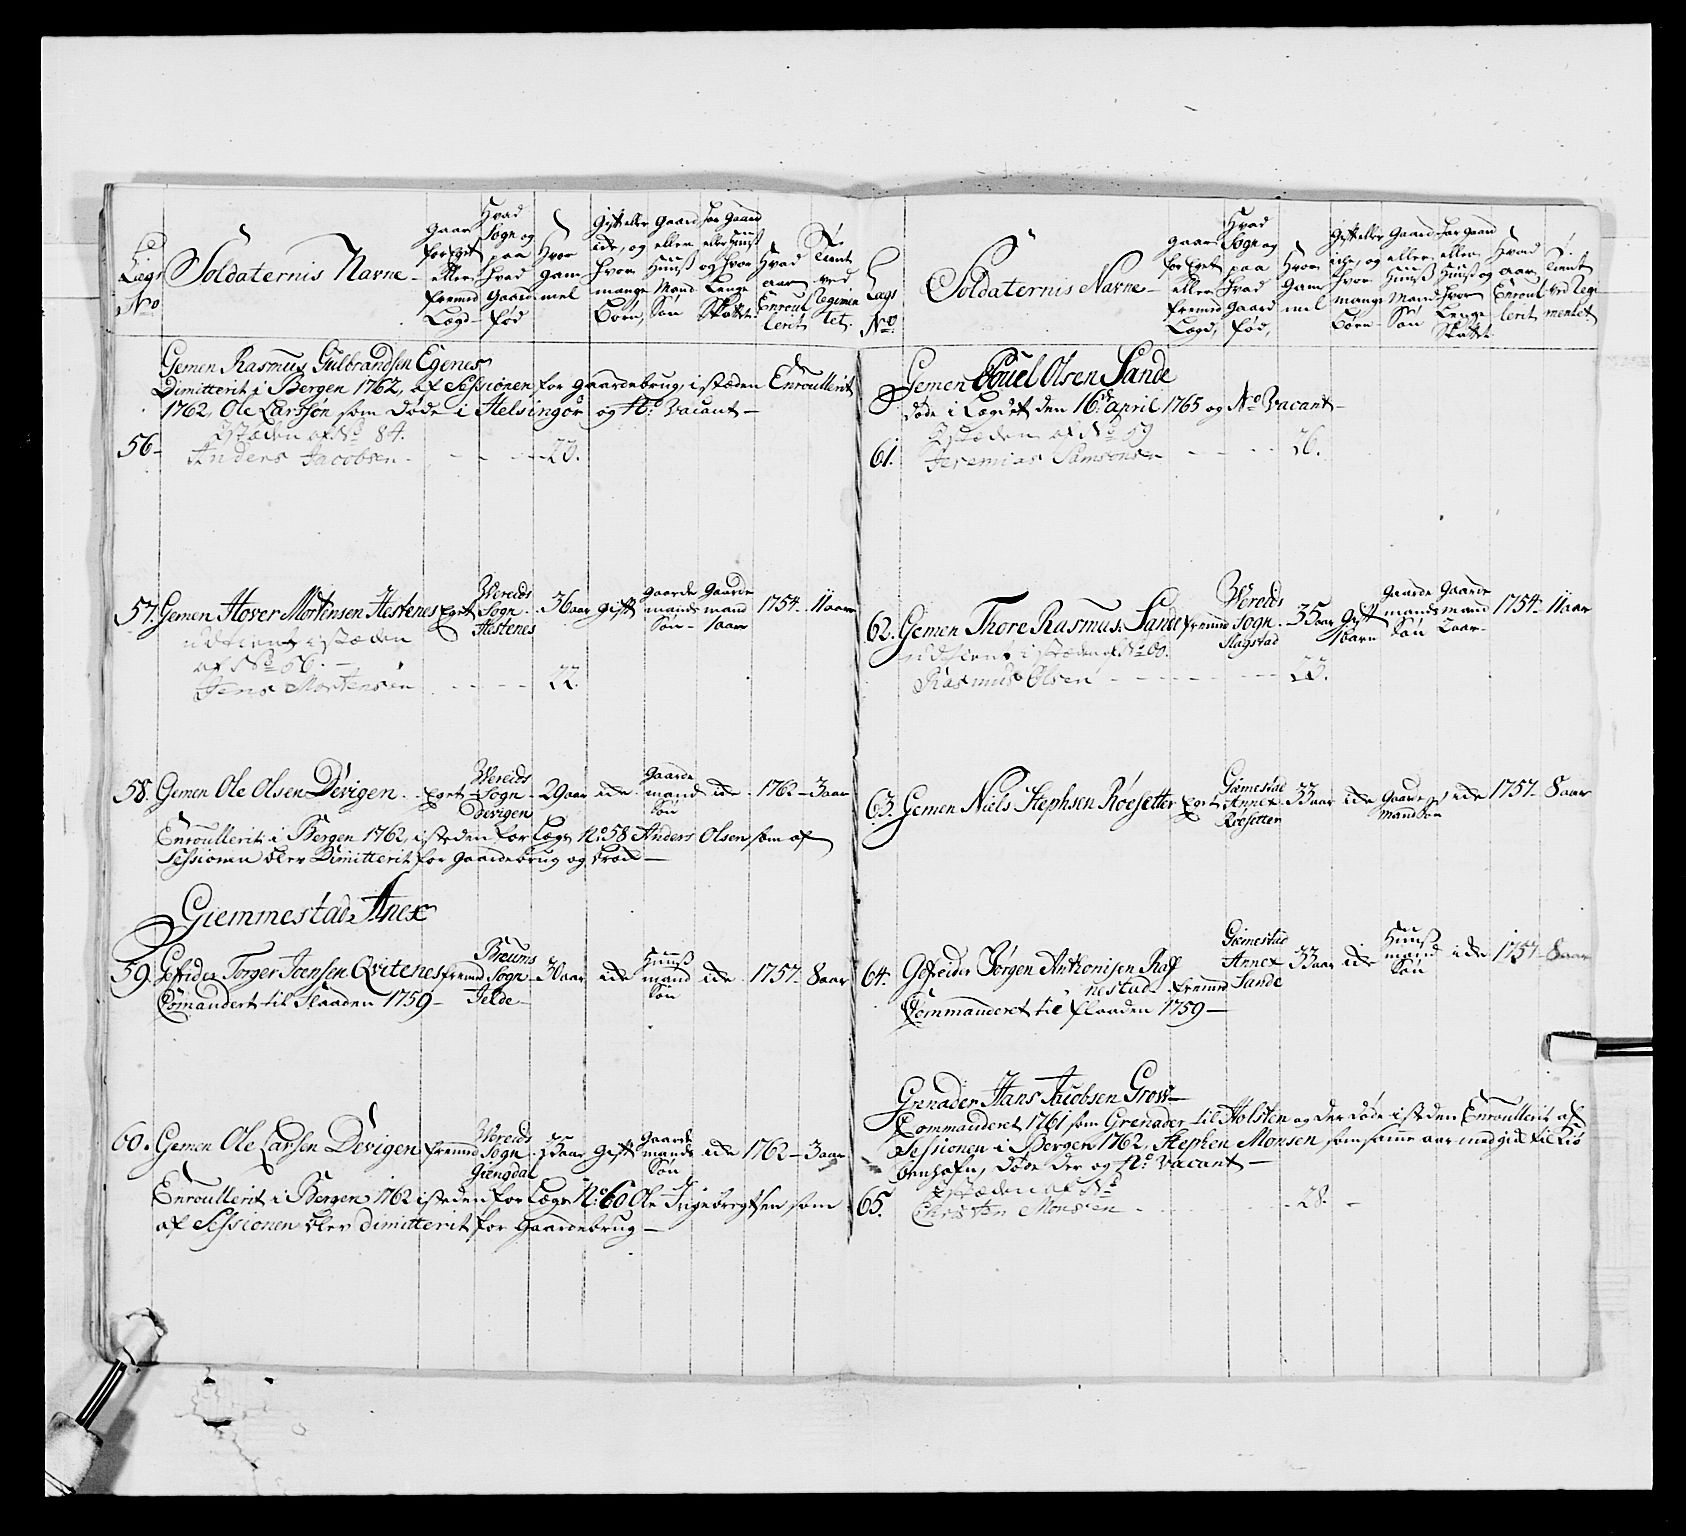 Lægs No
Soldaternis Navne
Gaar for Eget eller fremmed Lægd
Hvad Sogn og paa Hvad Gaard fød
Hvor gam mel
Gift eller ide, og hvor mange Børn,
Gaard eller Huuß Mand Søn
har Gaard eller Huuß og hvor Lenge Skattet
Hvad aar Enroullerit
Tient ved Regimentet.
Gemen Rasmus Gulbrandsen Egenes
Dimitterit i Bergen 1762, af Sessionen for gaardebrug, i stæden Enroullerit
1762, Ole Larssøn som døde i Helsingør og No Vacant
I stæden af No 84.
56 Anders Jacobsen 23.
57. Gemen Hover Mortensen Hestenes Eget Wereids Sogn Hestenes 36 aar gift gaarde mands Søn gaarde mand 1 aar 1754 11 aar
udtient i stæden
af No 56.
Jens Mortensen 22.
58. Gemen Ole Olsen Dovigen Eget Wereids Sogn Dovigen 29 aar ide gaarde mand Søn ide 1762 3 aar
Enroullerit i Bergen 1762, i steden for Lægs No 58 Anders Olsen som af
Sessionen blev Dimitterit for gaardebrug og
Giemmestad Anex
59. Gfrider Torger Joensen Qvitenes fremed Breums Sogn Felde 30 aar ide Huuß mand Søn ide 1757 8 aar
Comandert til Flaaden 1759
60. Gemen Ole Larsen Dovigen fremed Wereids Sogn Giengdal 35 aar gift gaarde mands Søn ide 1762 3 aar
Enroullerit i Bergen 1762 i steden for Lægs No 60 Ole Ingebrigtsen som
af Sessionen blev dimitterit for Gaardebrug
Lægs No
Soldaternis Navne
Gaar for Eget eller fremed Lægd,
Hvad Sogn og paa Hvad Gaard fød,
Hvor gam mel
Gift eller ide, og hvor mange Børn
Gaard eller Huuß Mand Søn
har Gaard eller Huuß og hvor Lenge Skattet
Hvad aar Enroullerit
Tient ved Regimentet
Gemen Pouel Olsen Sande
døde i Lægdet den 16de april 1765 og No Vacant
I stæden af No 59
61. Jeremias Samsonsen 26.
62. Gemen Thore Rasmus: Sande fremed Wereids Sogn Slagstad 35 aar gift 1 barn Gaarde mands Søn Gaarde mand 2 aar 1754 11 aar
udtient i stæden af No 60.
Rasmus Olsen 23.
63. Gemen Niels Stephsen Røesetter Eget Giemestad Annex Røesetter 33 aar ide Gaarde mandsøn ide 1757 8 aar
64. Gefreider Jørgen Anthonisen Raff
nestad fremed Giemestad Annex Sande 33 aar ide Huuß mand Søn ide 1757 8 aar
Commanderet til flaaden 1759
Grenader Hans Jacobsen Grow
Commanderet 1761 som Grenader til Holsten og der døde i steden Enroullerit af
Sessionen i Bergen 1762, Stephen Monsen som samme aar medgik til Kiø
benhafn, døde der og No Vacant
I stæden af No
65. Christen Monssen 28.